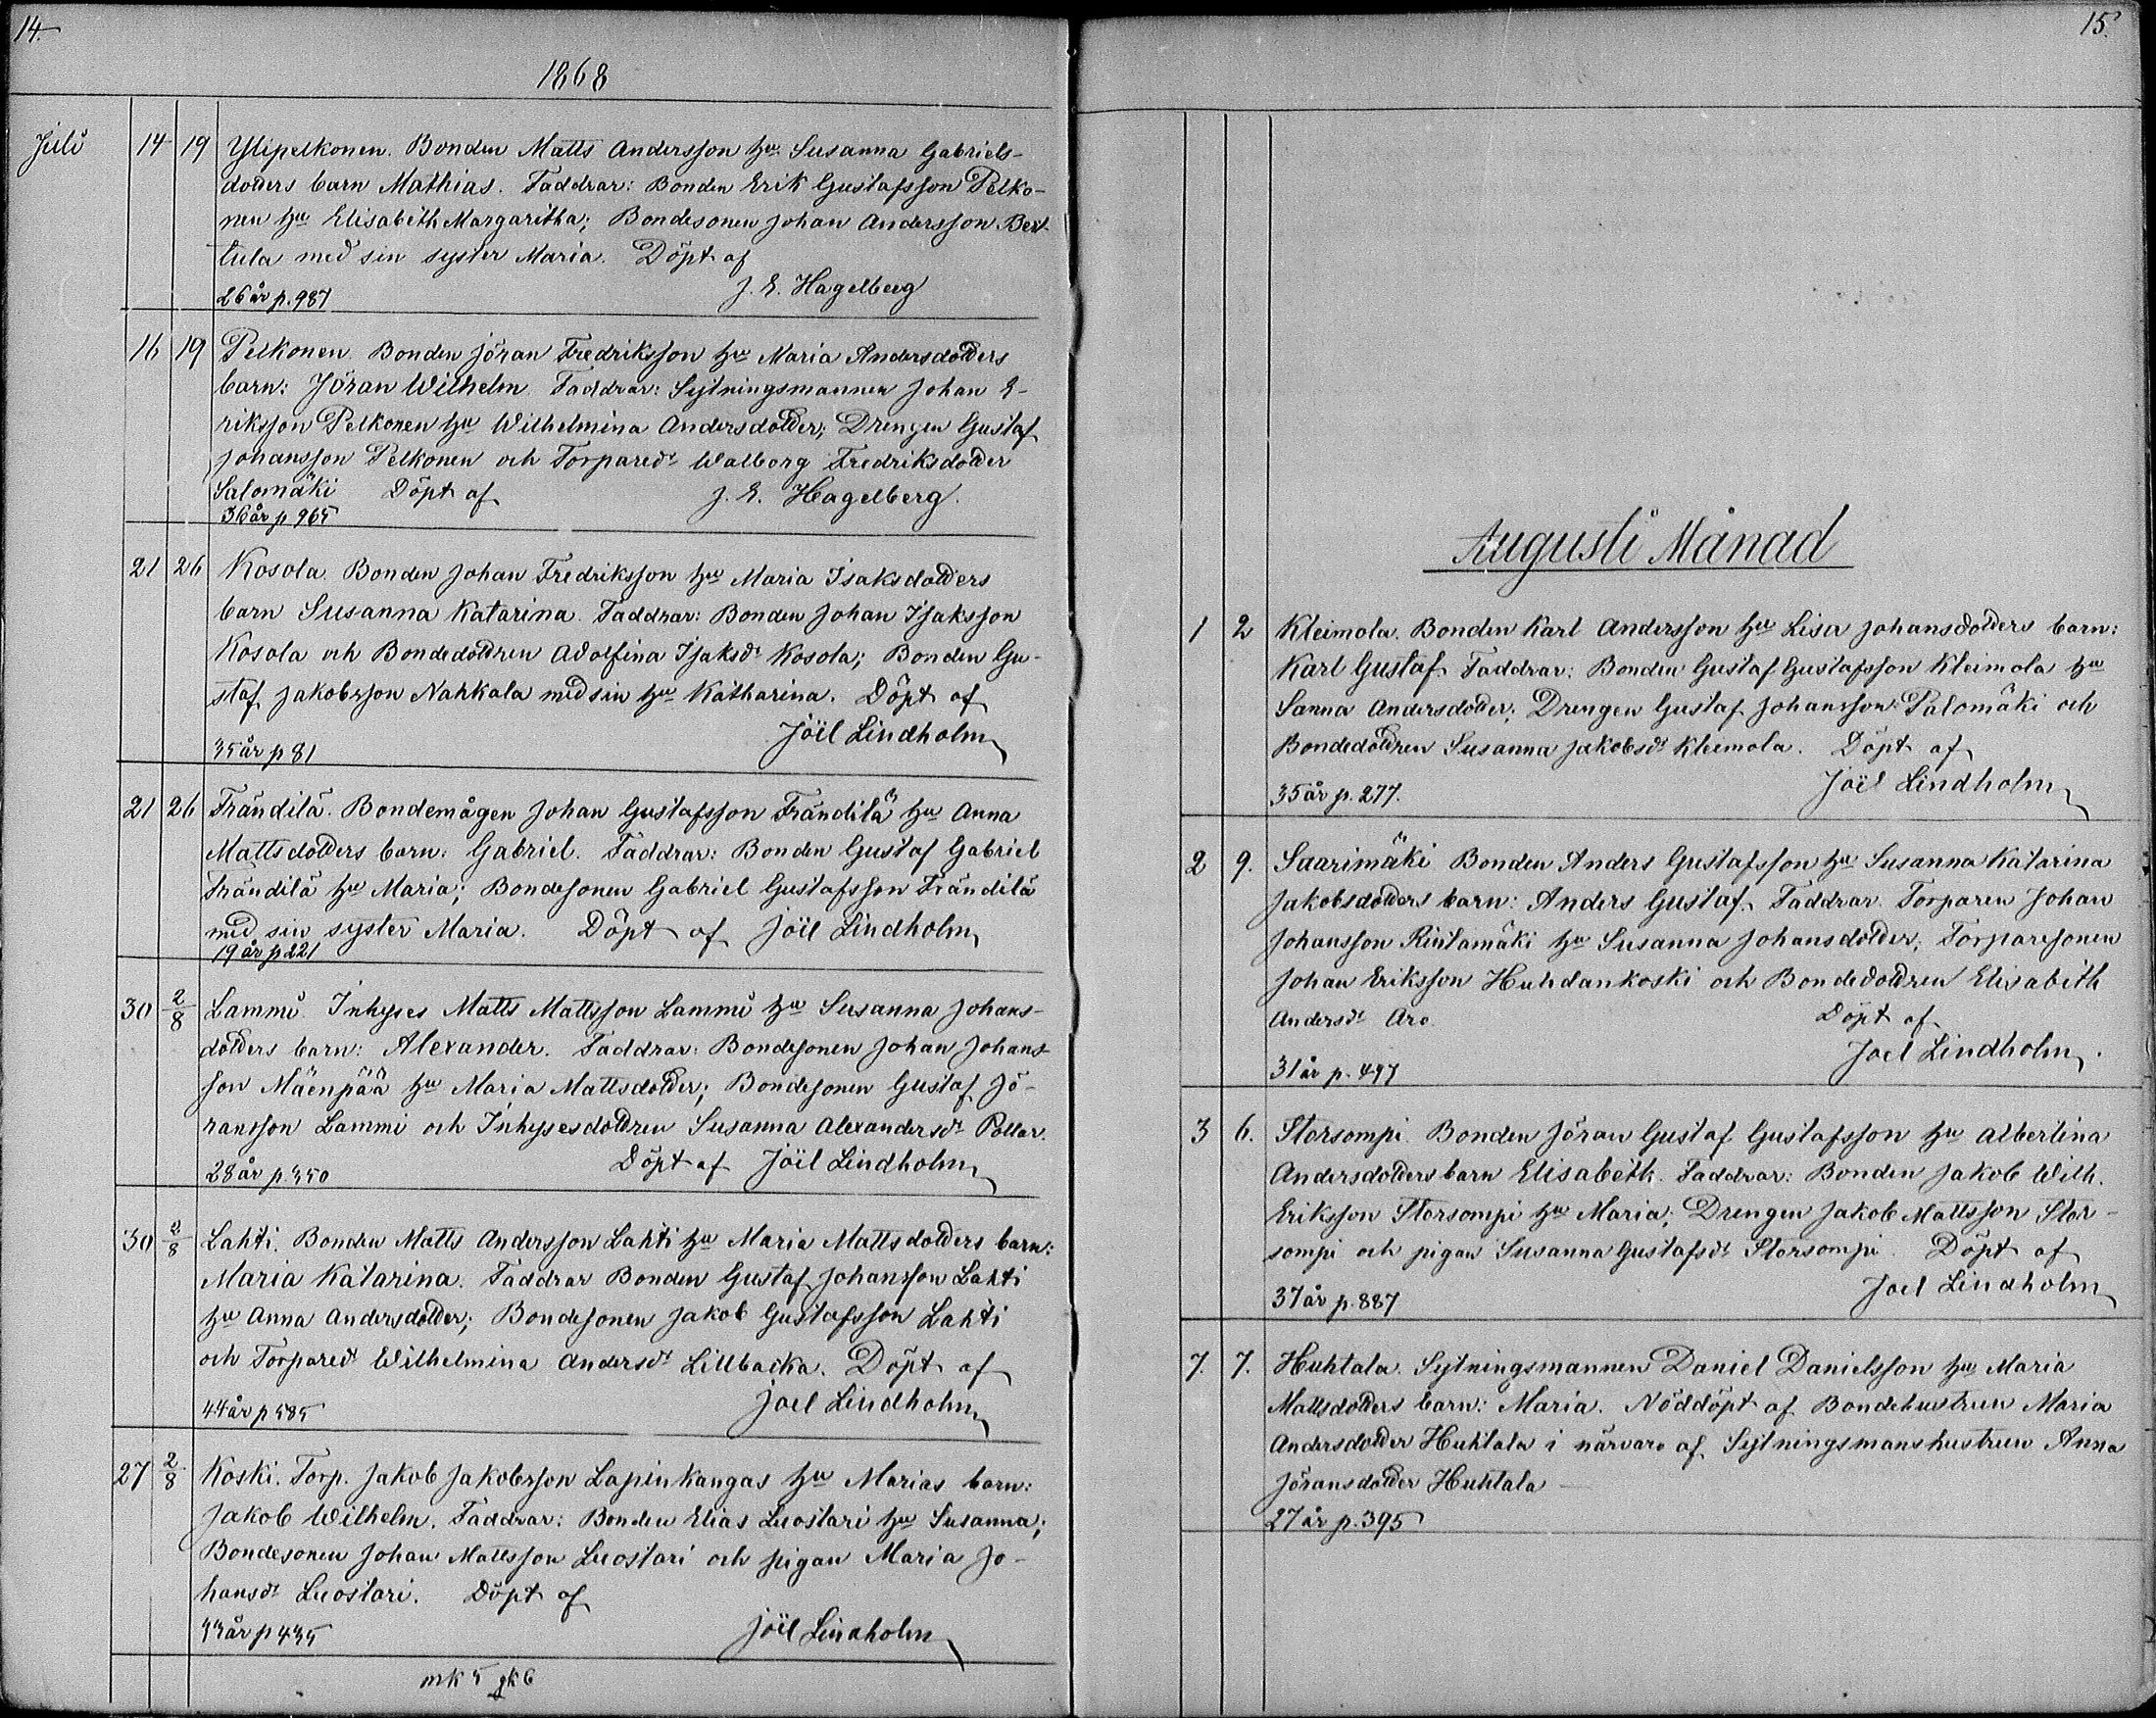 14.
1868
Juli
14 19 Ylipelkonen. Bonden Matts Andersson hu Susanna Gabriels-
dotters barn Mathias. Faddrar: Bonden Erik Gustafsson Pelko-
nen hu Elisabeth Margaritha; Bondesonen Johan Andersson Bert-
tula med sin syster Maria. Döpt af
26 år p. 987 J. E. Hagelberg
16 19 Pelkonen. Bonden Jöran Fredriksson hu Maria Andersdotters
barn: Jöran Wilhelm. Faddrar: Sytningsmannen Johan E-
riksson Pelkonen hu Wilhelmina Andersdotter; Drengen Gustaf
Johansson Pelkonen och Torparedr Walborg Fredriksdotter
Salomäki Döpt af J. E. Hagelberg.
36 år p 965
21 26 Kosola. Bonden Johan Fredriksson hu Maria Isaksdotters
barn Susanna Katarina. Faddrar: Bonden Johan Isaksson
Kosola och Bondedottren Adolfina Isaksdr Kosola; Bonden Gu-
staf Jakobsson Nahkala med sin hu Katharina. Döpt af
35 år p 81 Joël Lindholm
21 26 Frändilä. Bondemågen Johan Gustafsson Frändilä hu Anna
Mattsdotters barn: Gabriel. Faddrar: Bonden Gustaf Gabriel
Frändilä hu Maria; Bondesonen Gabriel Gustafsson Frändilä
med sin syster Maria. Döpt af Joël Lindholm
19 år p 221
30 2/8 Lammi. Inhyses Matts Mattsson Lammi hu Susanna Johans-
dotters barn: Alexander. Faddrar: Bondesonen Johan Johans-
son Mäenpää hu Maria Mattsdotter; Bondesonen Gustaf Jö-
ransson Lammi och Inhysesdottren Susanna Alexandersdr Pollar.
28 år p. 350 Döpt af Joël Lindholm
30 2/8 Lahti. Bonden Matts Andersson Lahti hu Maria Mattsdotters barn:
Maria Katarina. Faddrar Bonden Gustaf Johansson Lahti
hu Anna Andersdotter; Bondesonen Jakob Gustafsson Lahti
och Torparedr Wilhelmina Andersdr Lillbacka. Döpt af
44 år p 585 Joel Lindholm
27 2/8 Koski. Torp. Jakob Jakobsson Lapinkangas hu Marias barn:
Jakob Wilhelm. Faddrar: Bonden Elias Luostari hu Susanna;
Bondesonen Johan Mattsson Luostari och pigan Maria Jo-
hansdr Luostari. Döpt af
33 år p 435 Joël Lindholm
mk 5 qk 6
15.
Augusti Månad
1 2 Kleimola. Bonden Karl Andersson hu Lisa Johansdotters barn:
Karl Gustaf. Faddrar: Bonden Gustaf Gustafsson Kleimola hu
Sanna Andersdotter; Drengen Gustaf Johansson Palomäki och
Bondedottren Susanna Jakobsdr Kleimola. Döpt af
35 år p. 277. Joël Lindholm
2 9. Saarimäki Bonden Anders Gustafsson hu Susanna Katarina
Jakobsdotters barn: Anders Gustaf. Faddrar. Torparen Johan
Johansson Rintamäki hu Susanna Johansdotter; Torparesonen
Johan Eriksson Huhdankoski och Bondedottren Elisabeth
Andersdr Aro. Döpt af
31 år p. 497 Joel Lindholm.
3 6. Storsompi. Bonden Jöran Gustaf Gustafsson hu Albertina
Andersdotters barn Elisabeth. Faddrar: Bonden Jakob Wilh.
Eriksson Storsompi hu Maria; Drengen Jakob Mattsson Stor-
sompi och pigan Susanna Gustafsdr Storsompi. Döpt af
37 år p. 887 Joel Lindholm
7. 7. Huhtala. Sytningsmannen Daniel Danielsson hu Maria
Mattsdotters barn: Maria. Nöddöpt af Bondehustrun Maria
Andersdotter Huhtala i närvaro af Sytningsmanshustrun Anna
Jöransdotter Huhtala —
27 år p. 395